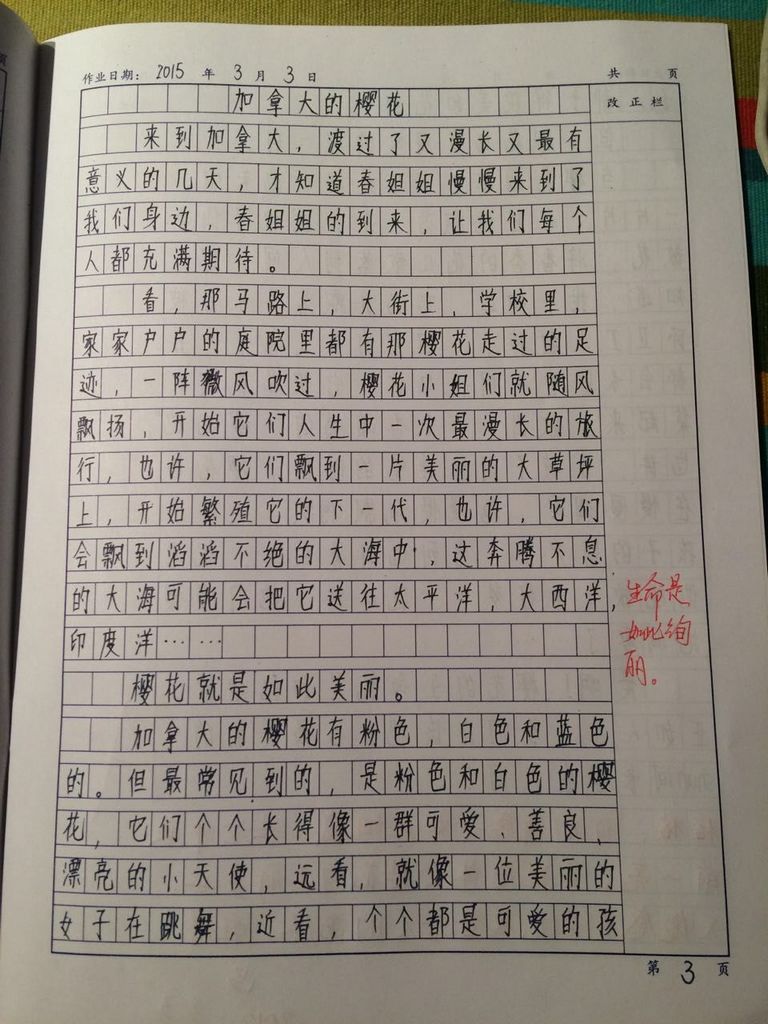 作业日期: 2015 年 3 月 3 日 共 页
加拿大的樱花 改正栏
来到加拿大，渡过了又漫长又最有
意义的几天，才知道春姐姐慢慢来到了
我们身边，春姐姐的到来，让我们每个
人都充满期待。
看，那马路上，大街上，学校里，
家家户户的庭院里都有那樱花走过的足
迹，一阵微风吹过，樱花小姐们就随风
飘扬，开始它们人生中一次最漫长的旅
行，也许，它们飘到一片美丽的大草坪
上，开始繁殖它的下一代，也许，它们
会飘到滔滔不绝的大海中，这奔腾不息
的大海可能会把它送往太平洋，大西洋，
印度洋……
樱花就是如此美丽。
加拿大的樱花有粉色，白色和蓝色
的。但最常见到的，是粉色和白色的樱
花，它们个个长得像一群可爱、善良、
漂亮的小天使，远看，就像一位美丽的
女子在跳舞，近看，个个都是可爱的孩
生命是
如此绚
丽。
第 3 页